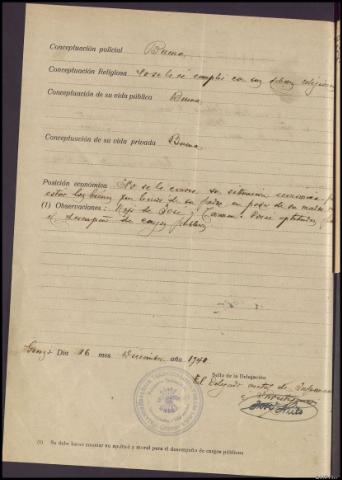 Conceptuación policial Buena
Conceptuación Religiosa No se le ve cumplir con sus deberes religiosos
Conceptuación de su vida pública Buena
Conceptuación de su vida privada Buena
Posición económica No se le conoce su situación económica
estar los bienes por herencia de su padre, en poder de su madre
(1) Observaciones: Hijo de José y Carmen. Posee aptitudes
el desempeño de cargos públicos
Día 16 mes Diciembre año 1940
Sello de la Delegación
El Delegado de Información
e Investigación
(1) Se debe hacer constar su aptitud y moral para el desempeño de cargos públicos